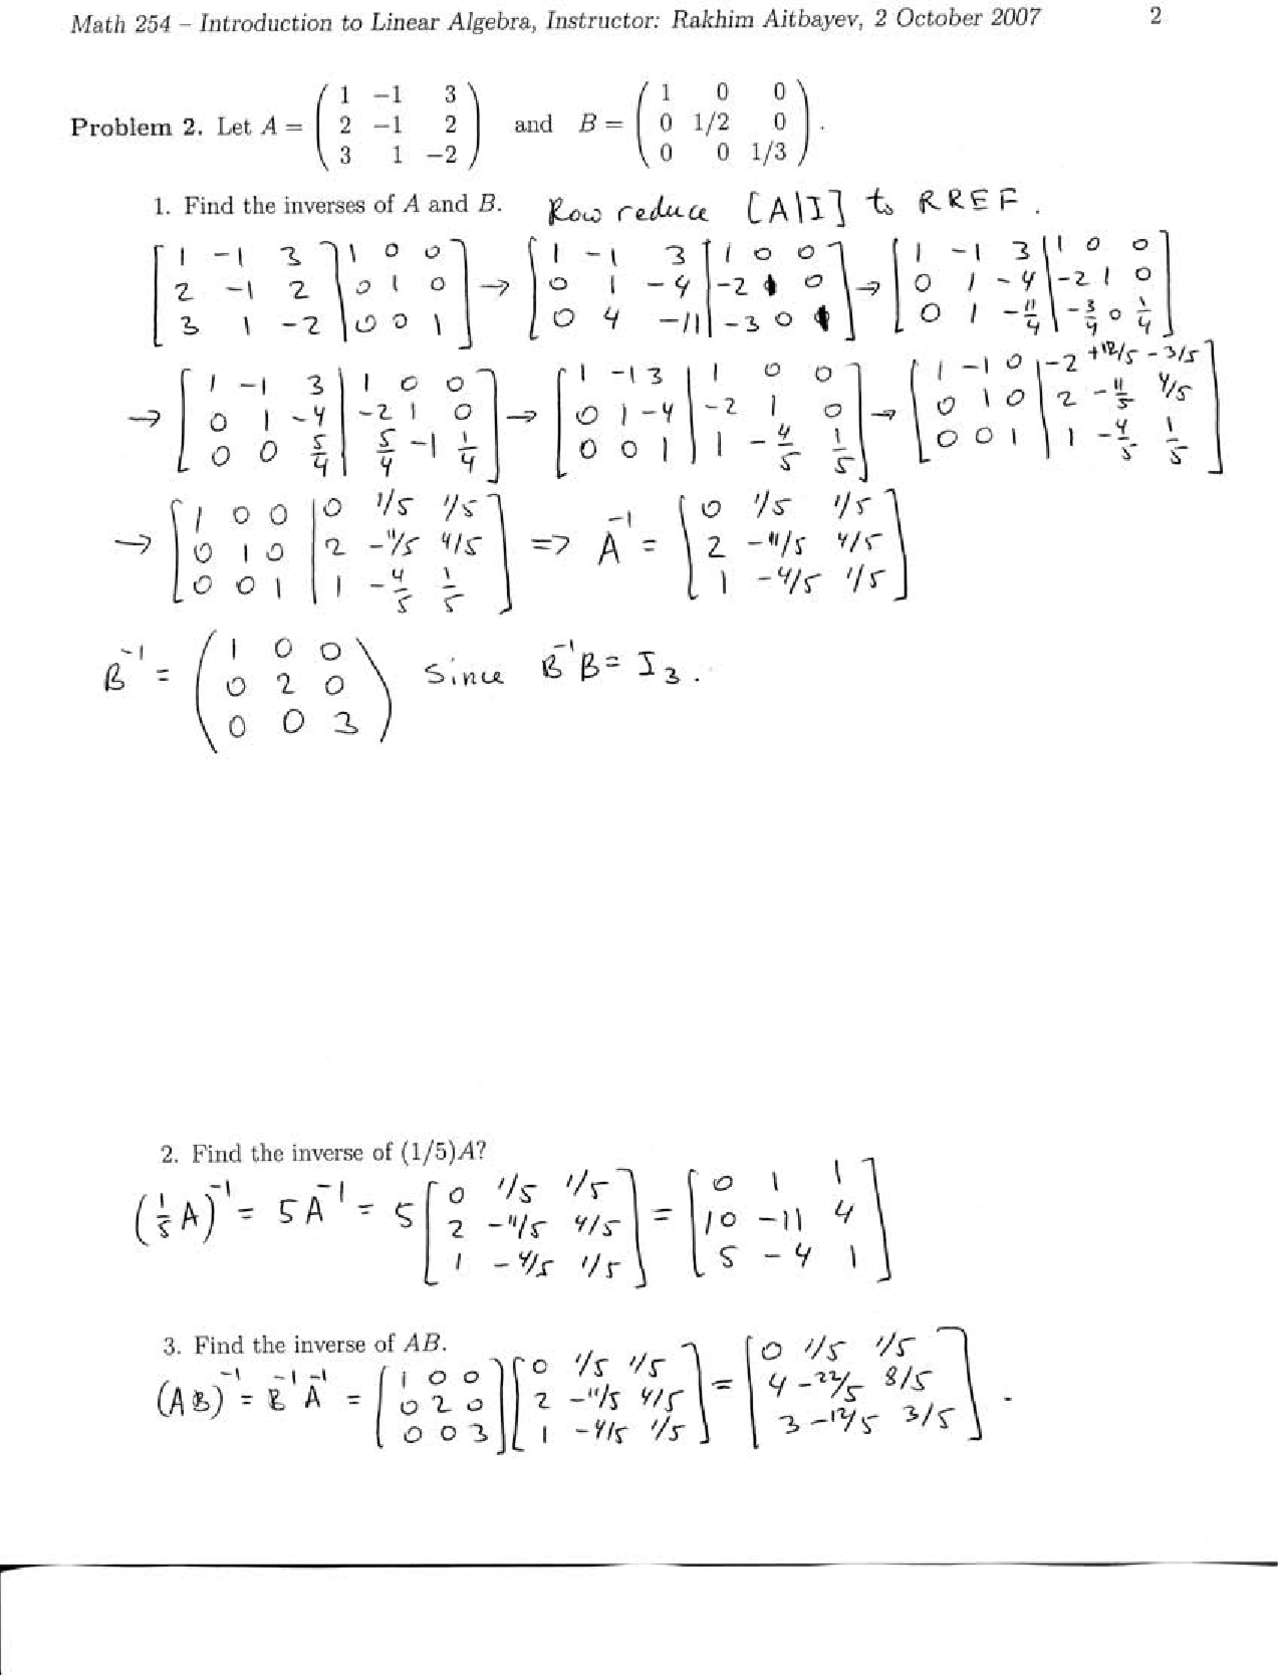 Math 254 – Introduction to Linear Algebra, Instructor: Rakhim Aitbayev, 2 October 2007 2
Problem 2. Let A = ( 1 −1 3 ; 2 −1 2 ; 3 1 −2 ) and B = ( 1 0 0 ; 0 1/2 0 ; 0 0 1/3 ).
1. Find the inverses of A and B. Row reduce [A|I] to RREF.
[ 1 -1 3 | 1 0 0 ; 2 -1 2 | 0 1 0 ; 3 1 -2 | 0 0 1 ] → [ 1 -1 3 | 1 0 0 ; 0 1 -4 | -2 1 0 ; 0 4 -11 | -3 0 1 ] → [ 1 -1 3 | 1 0 0 ; 0 1 -4 | -2 1 0 ; 0 1 -11/4 | -3/4 0 1/4 ]
→ [ 1 -1 3 | 1 0 0 ; 0 1 -4 | -2 1 0 ; 0 0 5/4 | 5/4 -1 1/4 ] → [ 1 -1 3 | 1 0 0 ; 0 1 -4 | -2 1 0 ; 0 0 1 | 1 -4/5 1/5 ] → [ 1 -1 0 | -2 +12/5 -3/5 ; 0 1 0 | 2 -11/5 4/5 ; 0 0 1 | 1 -4/5 1/5 ]
→ [ 1 0 0 | 0 1/5 1/5 ; 0 1 0 | 2 -11/5 4/5 ; 0 0 1 | 1 -4/5 1/5 ] => A⁻¹ = [ 0 1/5 1/5 ; 2 -11/5 4/5 ; 1 -4/5 1/5 ]
B⁻¹ = ( 1 0 0 ; 0 2 0 ; 0 0 3 ) since B⁻¹B = I₃.
2. Find the inverse of (1/5)A?
(1/5 A)⁻¹ = 5A⁻¹ = 5 [ 0 1/5 1/5 ; 2 -11/5 4/5 ; 1 -4/5 1/5 ] = [ 0 1 1 ; 10 -11 4 ; 5 -4 1 ]
3. Find the inverse of AB.
(AB)⁻¹ = B⁻¹A⁻¹ = [ 1 0 0 ; 0 2 0 ; 0 0 3 ] [ 0 1/5 1/5 ; 2 -11/5 4/5 ; 1 -4/5 1/5 ] = [ 0 1/5 1/5 ; 4 -22/5 8/5 ; 3 -12/5 3/5 ].